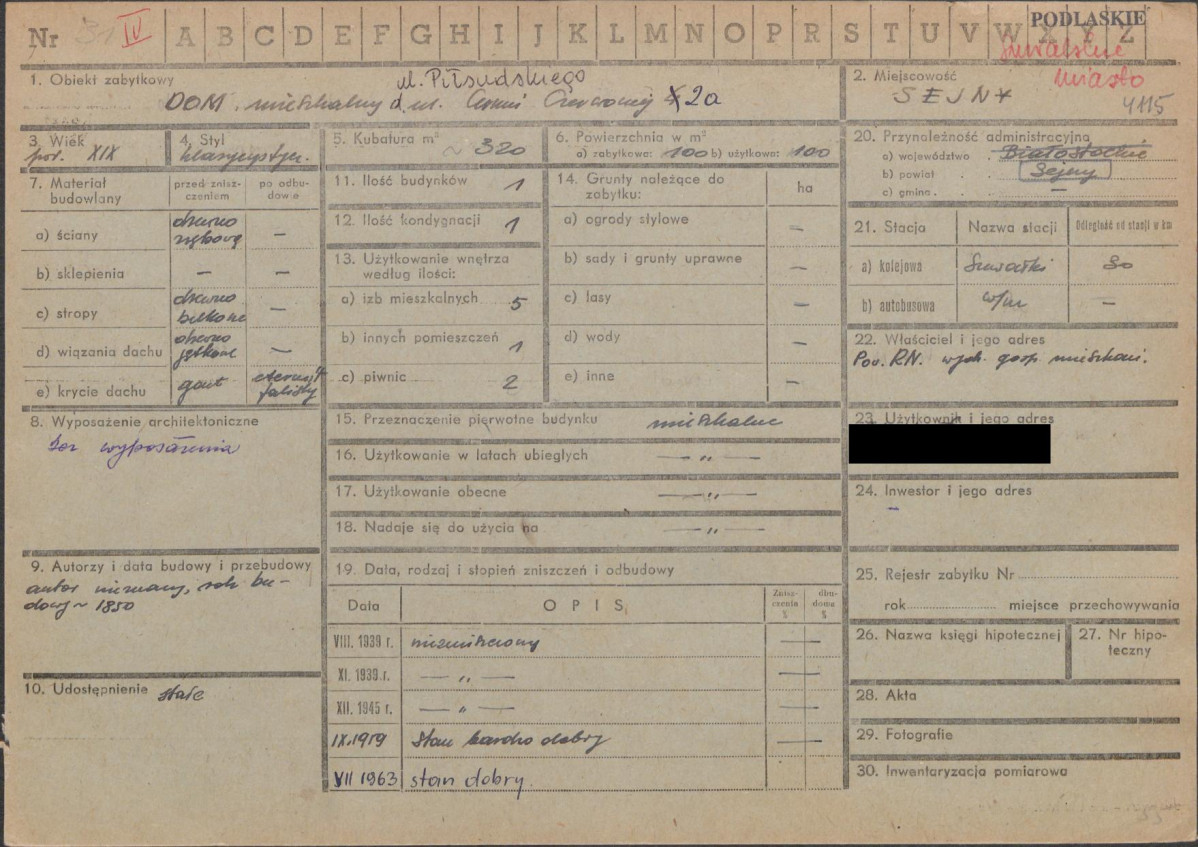 Nr 31 IV A B C D E F G H I J K L M N O P R S T U V W X Y Z
PODLASKIE
suwalskie
miasto
4115
1. Obiekt zabytkowy
ul. Piłsudskiego
DOM mieszkalny d. ul. Armii Czerwonej 2a
2. Miejscowość
SEJNY
3. Wiek
poł. XIX
4. Styl
klasycystycz.
5. Kubatura m³ ~ 320
6. Powierzchnia w m²
a) zabytkowa: 100 b) użytkowa: 100
7. Materiał budowlany
przed znisz-
czeniem
po odbu-
dowie
a) ściany
drewno
zrębowe
—
b) sklepienia — —
c) stropy
drewno
belkowe
—
d) wiązania dachu
drewno
jętkowe
—
e) krycie dachu
gont
eternit
falisty
8. Wyposażenie architektoniczne
bez wyposażenia
9. Autorzy i data budowy i przebudowy
autor nieznany, rok bu-
dowy ~ 1850
10. Udostępnienie stałe
11. Ilość budynków 1
12. Ilość kondygnacji 1
13. Użytkowanie wnętrza
według ilości:
a) izb mieszkalnych 5
b) innych pomieszczeń 1
c) piwnic 2
14. Grunty należące do
zabytku:
ha
a) ogrody stylowe —
b) sady i grunty uprawne —
c) lasy —
d) wody —
e) inne —
15. Przeznaczenie pierwotne budynku mieszkalne
16. Użytkowanie w latach ubiegłych — „ —
17. Użytkowanie obecne — „ —
18. Nadaje się do użycia na — „ —
19. Data, rodzaj i stopień zniszczeń i odbudowy
Data
OPIS
Znisz-
czenia
%
dbu-
doma
%
VIII. 1939 r. niezniszczony — —
XI. 1939 r. — „ — — —
XII. 1945 r. — „ — — —
IX.1959 Stan bardzo dobry — —
VII 1963 stan dobry.
20. Przynależność administracyjna
a) województwo . Białostockie
b) powiat . . Sejny
c) gmina . . —
21. Stacja
Nazwa stacji
Odległość od stacji w km
a) kolejowa Suwałki 30
b) autobusowa w/m —
22. Właściciel i jego adres
Pow. RN. wydz. gosp. mieszkani.
23. Użytkownik i jego adres
24. Inwestor i jego adres
–
25. Rejestr zabytku Nr
rok miejsce przechowywania
26. Nazwa księgi hipotecznej
27. Nr hipo-
teczny
28. Akta
29. Fotografie
30. Inwentaryzacja pomiarowa